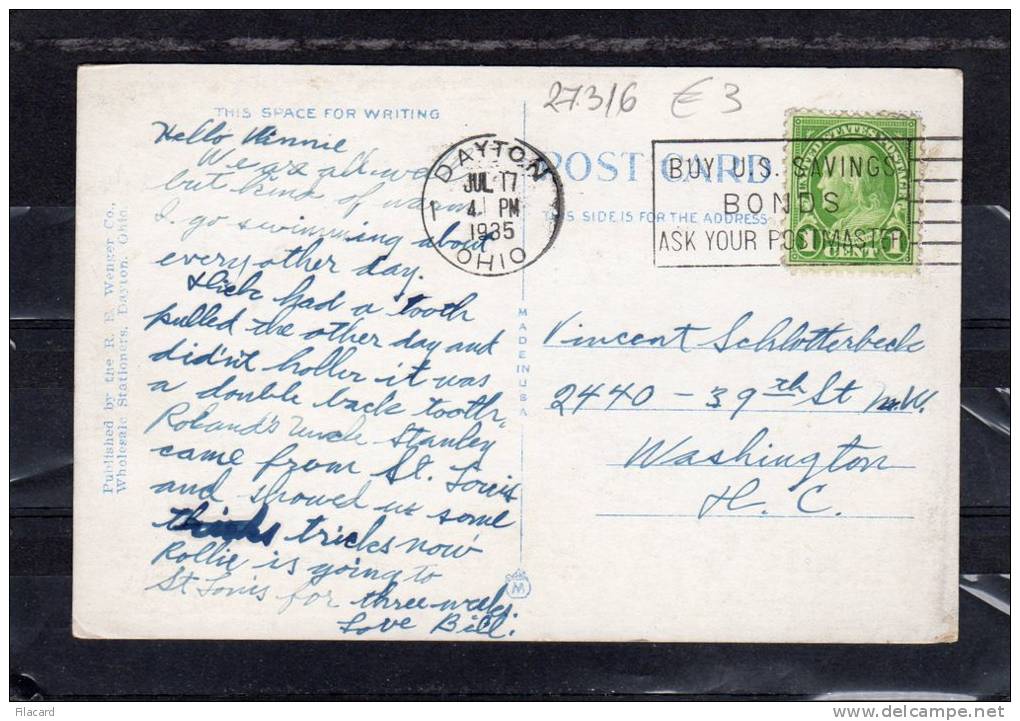 27316 € 3
THIS SPACE FOR WRITING
Hello Vinnie
We are all well
but kind of warm
I go swimming about
every other day.
Dick had a tooth
pulled the other day and
did'nt holler it was
a double back tooth,
Roland's Uncle Stanley
came from St. Louis
and showed us some
tricks now
Rollie is going to
St Louis for three weeks.
Love Bill.
Published by the R. E. Wenger Co.,
Wholesale Stationers, Dayton, Ohio.
DAYTON
JUL 17
4 PM
1935
OHIO
1
POST CARD
THIS SIDE IS FOR THE ADDRESS
BUY U.S. SAVINGS
BONDS
ASK YOUR POSTMASTER
UNITED STATES POSTAGE
1 CENT 1
MADE IN USA
Vincent Schlotterbeck
2440 - 39th St N.W.
Washington
D. C.
Filacard
www.delcampe.net